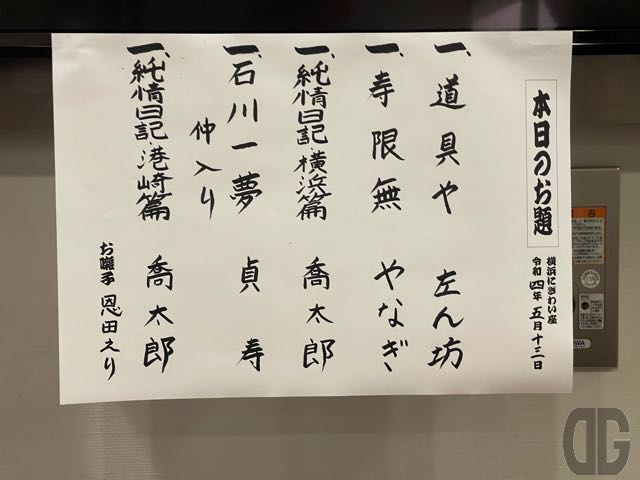 本日のお題
横浜にぎわい座
令和四年 五月十三日
一、道具や 左ん坊
一、寿限無 やなぎ
一、純情日記・横浜篇 喬太郎
仲入り
一、石川一夢 貞寿
一、純情日記・港崎篇 喬太郎
お囃子 恩田えり
DG